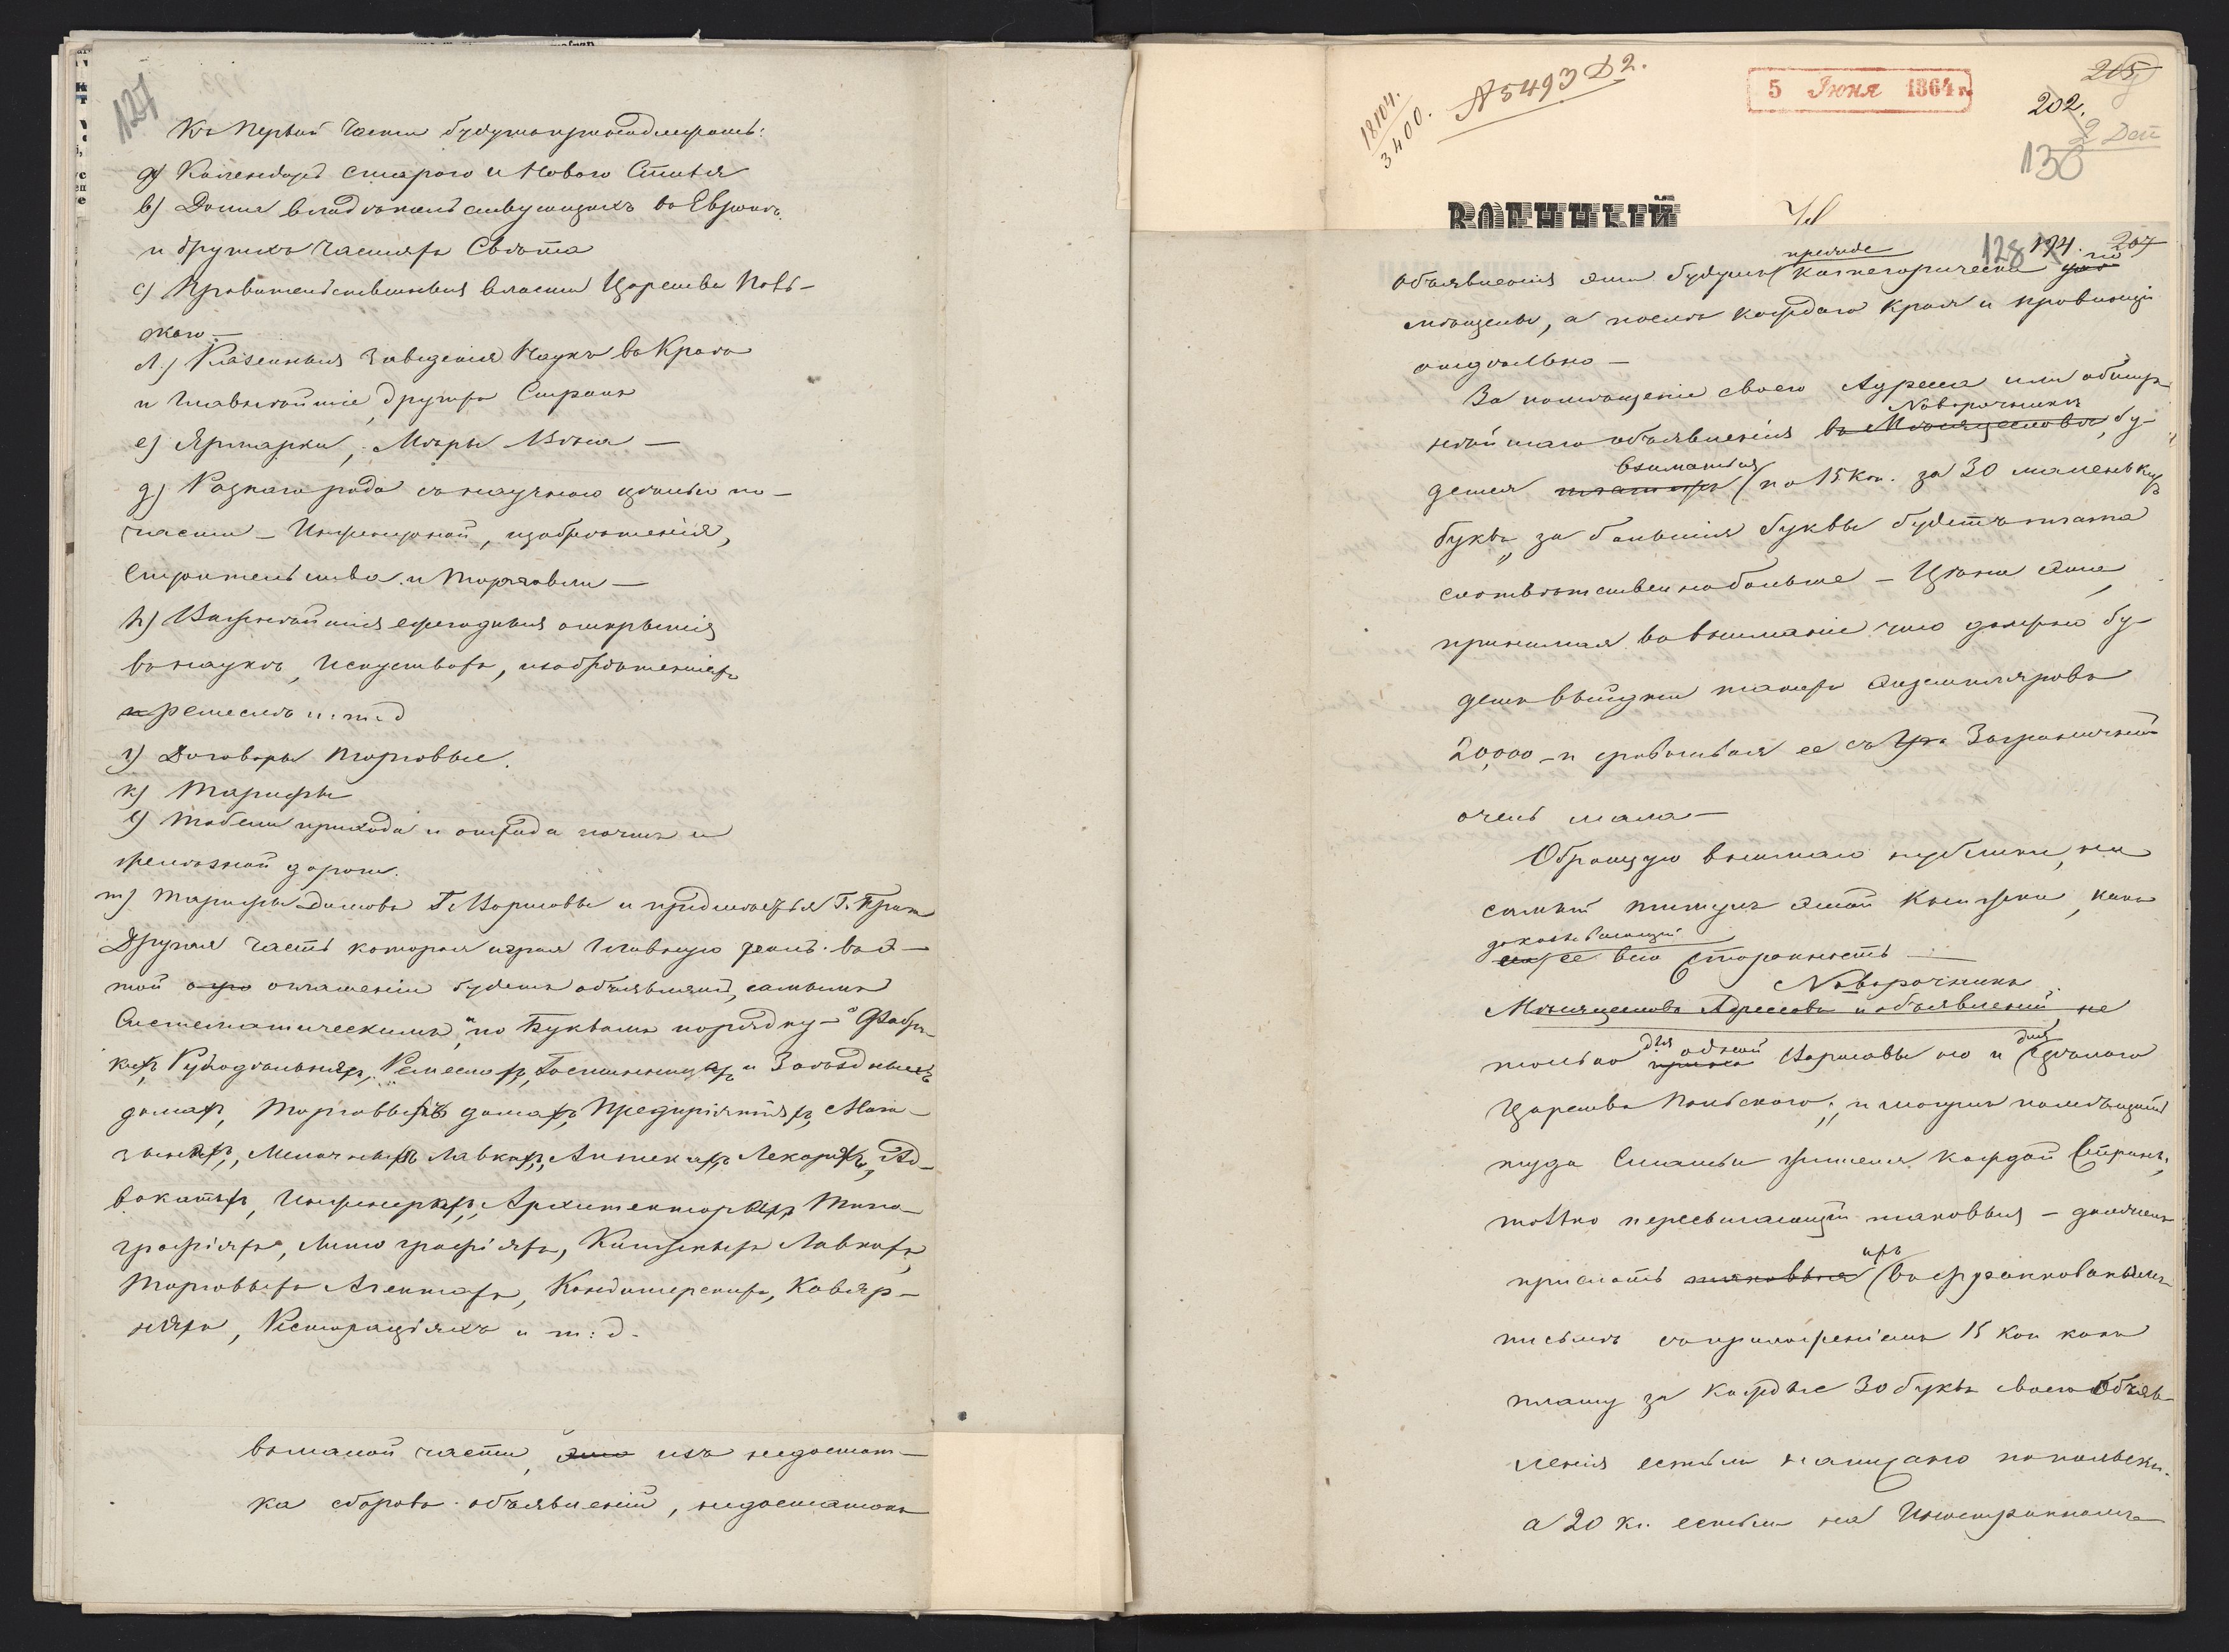 127
Къ первой части будутъ принадлежать:
а) Календарь старого и Нового Стиля
b) Домы владѣтельствующихъ въ Европѣ
и другихъ частяхъ Свѣта
с) Правительственныя власти Царства Поль-
скаго —
d.) Казенныя заведенія Наукъ въ Краѣ
и Главнѣйшіе другихъ Странъ
е) Ярмарки, Мѣры Вѣса —
g) Разнаго рода съ научною цѣлью по-
части — Инженерной, изобрѣтенія,
Строительства и Торговли —
h) Важнѣйшія ежегодныя открытія
въ наукѣ, Искуствахъ, изобрѣтеніяхъ
и ремеслѣ и. т. д
i) Договоры торговые.
k) Тарифы
l) Табели прихода и отхода почтъ и
желѣзной дороги.
m) Тарифы домовъ Г. Варшавы и предмѣстья Г. Праги
Другая часть которая играя Главную роль въ э-
той оглашеніи будетъ объявленій, самымъ
Систематическимъ, по Буквамъ порядку — о Фабри-
кахъ, Рукодѣльняхъ, Ремеслахъ, Гостинницахъ и Заѣздныхъ
домахъ, Торговыхъ домахъ, Предпріятіяхъ, Мага-
зинахъ, Мелочныхъ Лавкахъ, Аптекахъ, Лекаряхъ, Ад-
вокатахъ, Инженерахъ, Архитекторахъ, Типо-
графіяхъ, Литографіяхъ, Книжныхъ Лавкахъ,
Торговыхъ Агентахъ, Кондитерскихъ, Кавяр-
няхъ, Ресторацiяхъ и т: д.
въ малой части, изъ недостат-
ка сборовъ объявленій, недостатокъ
18104.
3400.
N 5493 Д 2.
5 Іюня 1864 г.
215
202.
2 Деп
130
ВОЕННЫЙ
128
194.
207
прежде
по
объявленія эти будутъ категорически
мѣщены, а послѣ каждаго края и провинціи
отдѣльно —
За помѣщеніе своего Адресса или обшир-
Новорочникъ
нѣйшаго объявленія въ Мѣсяцесловѣ, бу-
взиматься
детъ платить по 15 коп. за 30 маленькихъ
буквъ, за большія буквы будетъ плата
соотвѣтственно больше — Цѣна эта
принимая во вниманіе что должно бу-
детъ выйдти такихъ экземпляровъ
20,000 — и сравнивая ее съ Заграничной
очень мала —
Обращую вниманіе публики, на
самый титулъ этой Книжки, какъ
доказывающій
ее всю сторонность —
Новорочникъ
Мѣсяцеслова Адрессовъ и объявленій не
для одной
для
только Варшавы но и цѣлаго
Царства Польскаго; и могутъ помѣщать
туда Статьи жители каждой Страны;
только пересылающій таковыя — долженъ
ихъ
прислать таковыя въ франкованнымъ
письмѣ съ приложеніемъ 15 коп какъ
плату за каждые 30 буквъ своего Объяв-
ленія естьли написано по польски.
а 20 к. естьли на Иностранномъ